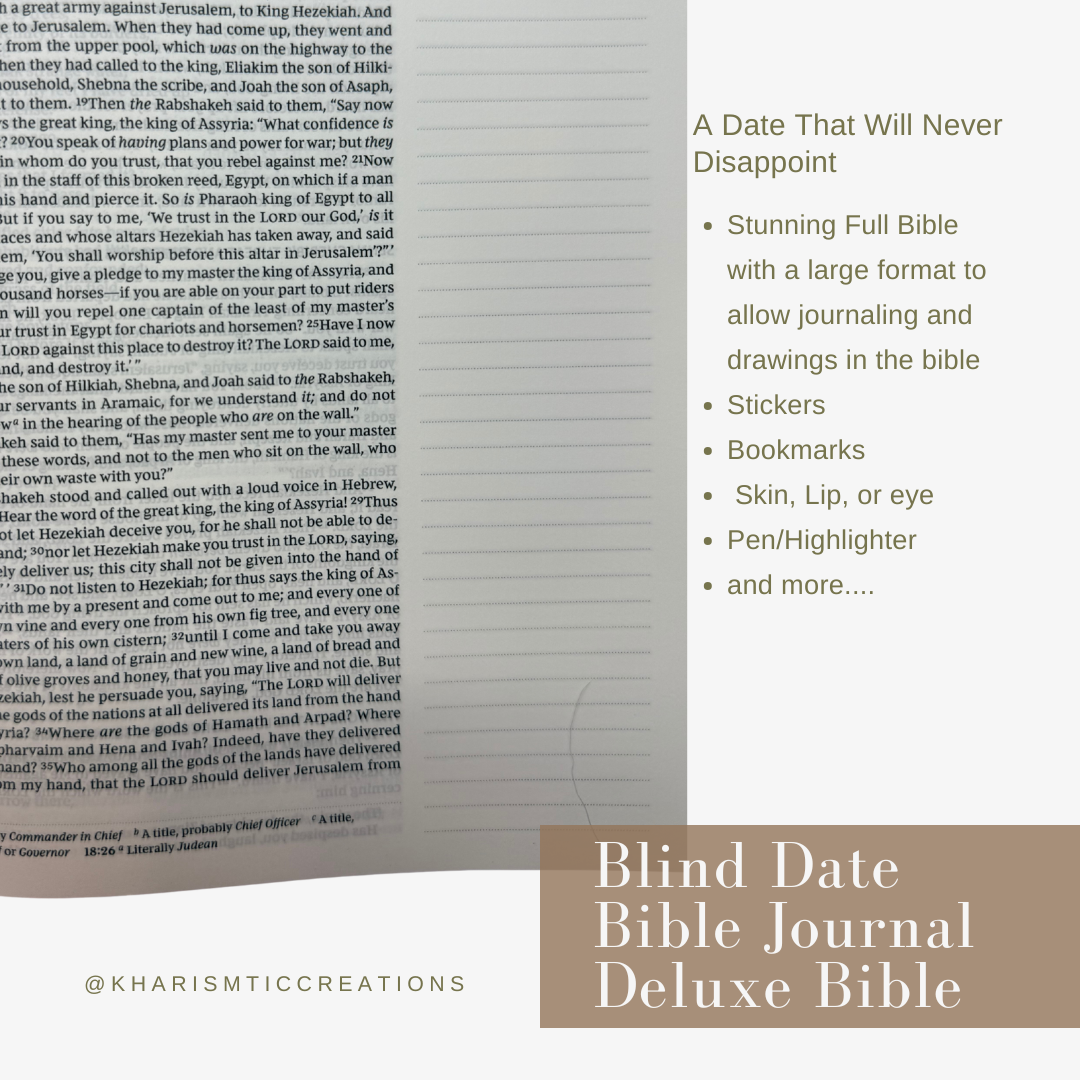 h a great army against Jerusalem, to King Hezekiah. And
e to Jerusalem. When they had come up, they went and
from the upper pool, which was on the highway to the
hen they had called to the king, Eliakim the son of Hilki-
ousehold, Shebna the scribe, and Joah the son of Asaph,
t to them. ¹⁹Then the Rabshakeh said to them, “Say now
s the great king, the king of Assyria: “What confidence is
? ²⁰You speak of having plans and power for war; but they
in whom do you trust, that you rebel against me? ²¹Now
in the staff of this broken reed, Egypt, on which if a man
his hand and pierce it. So is Pharaoh king of Egypt to all
But if you say to me, ‘We trust in the LORD our God,’ is it
aces and whose altars Hezekiah has taken away, and said
em, ‘You shall worship before this altar in Jerusalem’?”’
ge you, give a pledge to my master the king of Assyria, and
ousand horses—if you are able on your part to put riders
n will you repel one captain of the least of my master’s
ur trust in Egypt for chariots and horsemen? ²⁵Have I now
LORD against this place to destroy it? The LORD said to me,
nd, and destroy it.’ ”
he son of Hilkiah, Shebna, and Joah said to the Rabshakeh,
ur servants in Aramaic, for we understand it; and do not
wᵃ in the hearing of the people who are on the wall.”
keh said to them, “Has my master sent me to your master
these words, and not to the men who sit on the wall, who
eir own waste with you?”
shakeh stood and called out with a loud voice in Hebrew,
Hear the word of the great king, the king of Assyria! ²⁹Thus
ot let Hezekiah deceive you, for he shall not be able to de-
and; ³⁰nor let Hezekiah make you trust in the LORD, saying,
ely deliver us; this city shall not be given into the hand of
” ’ ³¹Do not listen to Hezekiah; for thus says the king of As-
with me by a present and come out to me; and every one of
n vine and every one from his own fig tree, and every one
aters of his own cistern; ³²until I come and take you away
own land, a land of grain and new wine, a land of bread and
f olive groves and honey, that you may live and not die. But
zekiah, lest he persuade you, saying, “The LORD will deliver
e gods of the nations at all delivered its land from the hand
yria? ³⁴Where are the gods of Hamath and Arpad? Where
pharvaim and Hena and Ivah? Indeed, have they delivered
hand? ³⁵Who among all the gods of the lands have delivered
om my hand, that the LORD should deliver Jerusalem from
y Commander in Chief ᵇ A title, probably Chief Officer ᶜ A title,
f or Governor 18:26 ᵃ Literally Judean
A Date That Will Never
Disappoint
• Stunning Full Bible
with a large format to
allow journaling and
drawings in the bible
• Stickers
• Bookmarks
• Skin, Lip, or eye
• Pen/Highlighter
• and more....
Blind Date
Bible Journal
Deluxe Bible
@KHARISMTICCREATIONS